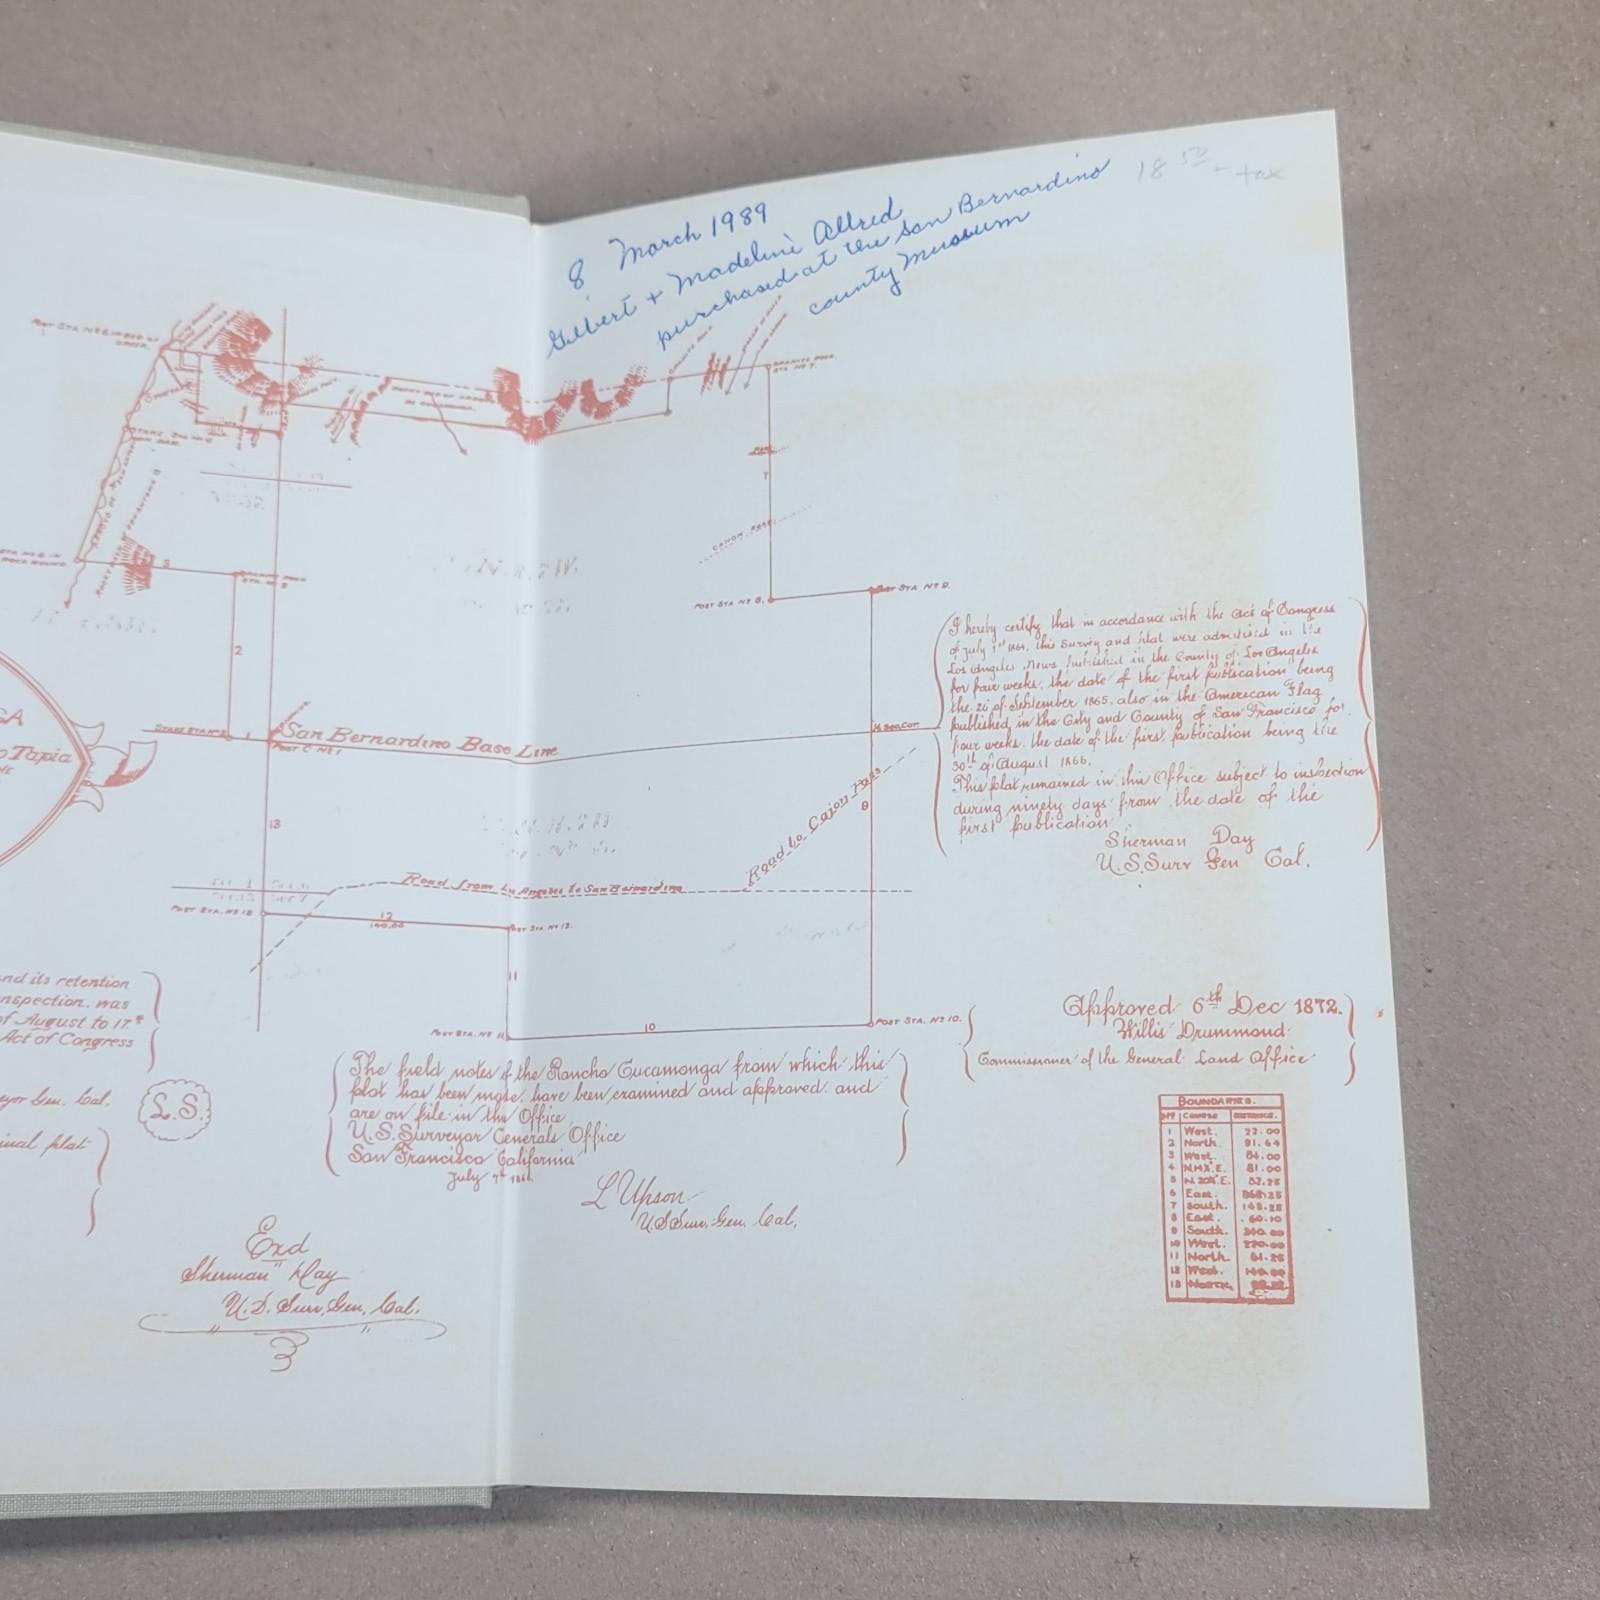 8 March 1989
Gilbert + Madeline Allred
purchased at the San Bernardino
county Museum
18 50 + tax
POST STA. Nº 8.
POST STA Nº 9.
CANON ROAD
7
3
2
1
GA
o Tapia
San Bernardino Base Line
POST C Nº 1
13
9
Road to Cajon Pass
Road from Los Angeles to San Bernardino
POST STA. Nº 13
12
POST STA. Nº 12.
11
POST STA. Nº 11
10
POST STA. Nº 10.
I hereby certify that in accordance with the Act of Congress
of July 1st 1864, this Survey and plat were advertised in the
Los Angeles News published in the County of Los Angeles
for four weeks, the date of the first publication being
the 26 of September 1865, also in the American Flag
published in the City and County of San Francisco for
four weeks. the date of the first publication being the
30th of August 1866.
This plat remained in this Office subject to inspection
during ninety days from the date of the
first publication
Sherman Day
U.S. Surv Gen Cal.
Approved 6th Dec 1872.
Willis Drummond
Commissioner of the General Land Office
and its retention
nspection, was
of August to 17th
Act of Congress
eyor Gen. Cal.
L.S.
inal plat
The field notes of the Rancho Cucamonga from which this
plat has been made, have been examined and approved and
are on file in this Office
U.S. Surveyor Generals Office
San Francisco California
July 7th
L Upson
U.S Surv. Gen. Cal.
Exd
Sherman Day
U.S. Surv. Gen. Cal.
BOUNDARIES.
Nº Course DISTANCE.
1 West. 22.00
2 North. 91.64
3 West. 84.00
4 E. 81.00
5 E. 52.25
6 East.
7 South. 145.25
8 East. 60.10
9 South. 240.00
10 West. 220.00
11 North. 61.25
12 West. 140.00
13 North.